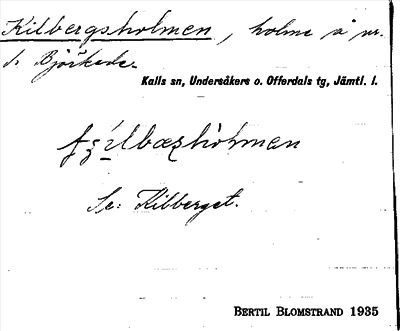 Kilbergsholmen, holme i nr.
d. Björkede.
Kalls sn, Undersåkers o. Offerdals tg, Jämtl. l.
Se: Kilberget.
BERTIL BLOMSTRAND 1935